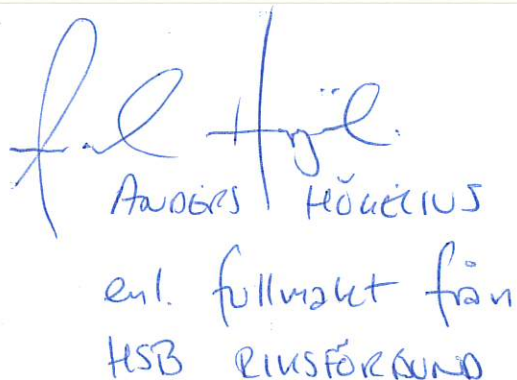 ANDERS HÖKELIUS
enl. fullmakt från
HSB RIKSFÖRBUND